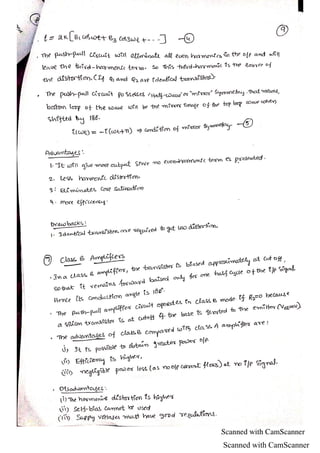 9
i = 2k[B₁ cosωt + B₃ cos3ωt + - - -] — 4
• The push-pull circuit will eliminate all even harmonics in the o/p and will
leave the third-harmonic term. So this third-harmonic is the source of
the distortion (If Q₁ and Q₂ are identical transistors)
• The push-pull circuit possesses "Half-wave" or "mirror" symmetry. That means,
bottom loop of the wave will be the mirror image of the top loop wave when
shifted by 180.
i(ωt) = -i(ωt+π) → condition of mirror symmetry — 5
Advantages :
1. It will give more output since no even-harmonic term is presented.
2. Less harmonic distortion
3. Eliminates core saturation
4. more efficiency.
Drawbacks :
1. Identical transistors are required to get low distortion.
Class B Amplifiers
• In a class B amplifier, the transistor is biased approximately at cut off,
so that it remains forward biased only for one half cycle of the i/p signal.
Hence its conduction angle is 180°.
• The push-pull amplifier circuit operates in class B mode if R₂=0 because
a silicon transistor is at cutoff if the base is shorted to the emitter
• The advantages of class B compared with class A amplifier are :
i) It is possible to obtain greater power o/p.
ii) Efficiency is higher,
iii) negligible power loss (as no o/p current flows) at no i/p signal.
• Disadvantages :
(i) The harmonic distortion is higher
(ii) Self-bias cannot be used
(iii) Supply voltages must have good regulations.
Scanned with CamScanner
Scanned with CamScanner